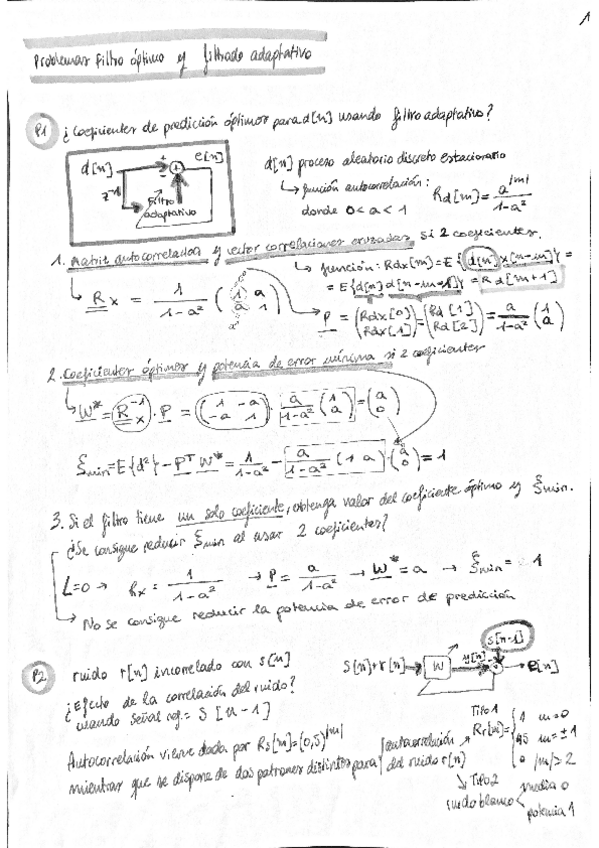 1
Problemas filtro óptimo y filtrado adaptativo
P1 ¿Coeficientes de predicción óptimos para d[n] usando filtro adaptativo?
d[n] + - e[n]
z⁻¹ Filtro adaptativo
d[n] proceso aleatorio discreto estacionario
↳ función autocorrelación: Rd[m] = a^|m| / (1-a²)
donde 0<a<1
1. Matriz autocorrelación y vector correlaciones cruzadas si 2 coeficientes.
↳ función: Rdx[m] = E{d[n]x[n-m]} =
= E{d[n]d[n-m-1]} = Rd[m+1]
↳ Rx = 1/(1-a²) (1 a; a 1)
P = (Rdx[0]; Rdx[1]) = (Rd[1]; Rd[2]) = a/(1-a²) (1; a)
2. Coeficientes óptimos y potencia de error mínima si 2 coeficientes
↳ W* = Rx⁻¹ · P = (1 -a; -a 1) · a/(1-a²) (1; a) = (a; 0)
ξmin = E{d²} - Pᵀ W* = 1/(1-a²) - a/(1-a²) (1 a) · (a; 0) = 1
3. Si el filtro tiene un solo coeficiente, obtenga valor del coeficiente óptimo y ξmin.
¿Se consigue reducir ξmin al usar 2 coeficientes?
L=0 → hx = 1/(1-a²) → P = a/(1-a²) → W* = a → ξmin = 1
↳ No se consigue reducir la potencia de error de predicción
P2 ruido r[n] incorrelado con s[n]
¿Efecto de la correlación del ruido?
usando señal ref = S[n-1]
S[n]+r[n] → W y[n] → e[n]
s[n-1]
Autocorrelación viene dada por Rs[m] = (0,5)^|m|
mientras que se dispone de dos patrones distintos para autocorrelación del ruido r[n]
Tipo 1
Rr[m] = { 1 m=0
m=±1
0 |m|>2
↳ Tipo 2
ruido blanco < media 0
potencia 1